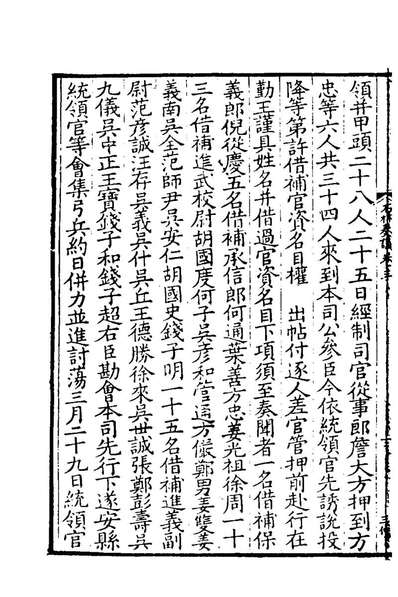 領并甲頭二十八人二十五日經制司官從事郎詹大方押到方
忠等六人共三十四人來到本司公參臣今依統領官先誘說投
降等第許借補官資名目權　出帖付逐人差官管押前赴行在
勤王謹具姓名并借過官資名目下項須至奏聞者一名借補保
義郎倪從慶五名借補承信郎何通葉善方忠姜光祖徐周一十
三名借補進武校尉胡國度何子吳彥和管這方儀鄭男姜雙姜
義南吳全范師尹吳安仁胡國史錢子明一十五名借補進義副
尉范彥誠汪存吳義吳什吳丘王德勝徐來吳世誠張鄭彭壽吳
九儀吳中正王寶錢子和錢子超右臣勘會本司先行下遂安縣
統領官等會集弓兵約日併力並進討蕩三月二十九日統領官